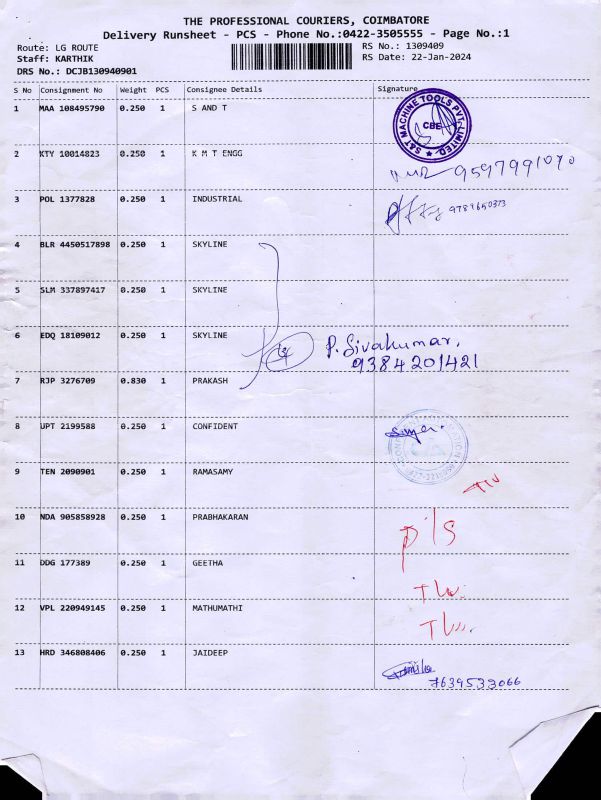 THE PROFESSIONAL COURIERS, COIMBATORE
Delivery Runsheet - PCS - Phone No.:0422-3505555 - Page No.:1
Route: LG ROUTE RS No.: 1309409
Staff: KARTHIK RS Date: 22-Jan-2024
DRS No.: DCJB130940901
S No Consignment No Weight PCS Consignee Details Signature
1 MAA 108495790 0.250 1 S AND T
S&T MACHINE TOOLS PVT. LIMITED
CBE
2 KTY 10014823 0.250 1 K M T ENGG
9597991070
3 POL 1377828 0.250 1 INDUSTRIAL
9789650373
4 BLR 4450517898 0.250 1 SKYLINE
5 SLM 337897417 0.250 1 SKYLINE
6 EDQ 18109012 0.250 1 SKYLINE
P. Sivakumar,
9384201421
7 RJP 3276709 0.830 1 PRAKASH
8 UPT 2199588 0.250 1 CONFIDENT
9 TEN 2090901 0.250 1 RAMASAMY
10 NDA 905858928 0.250 1 PRABHAKARAN
11 DDG 177389 0.250 1 GEETHA
12 VPL 220949145 0.250 1 MATHUMATHI
13 HRD 346808406 0.250 1 JAIDEEP
7639533066